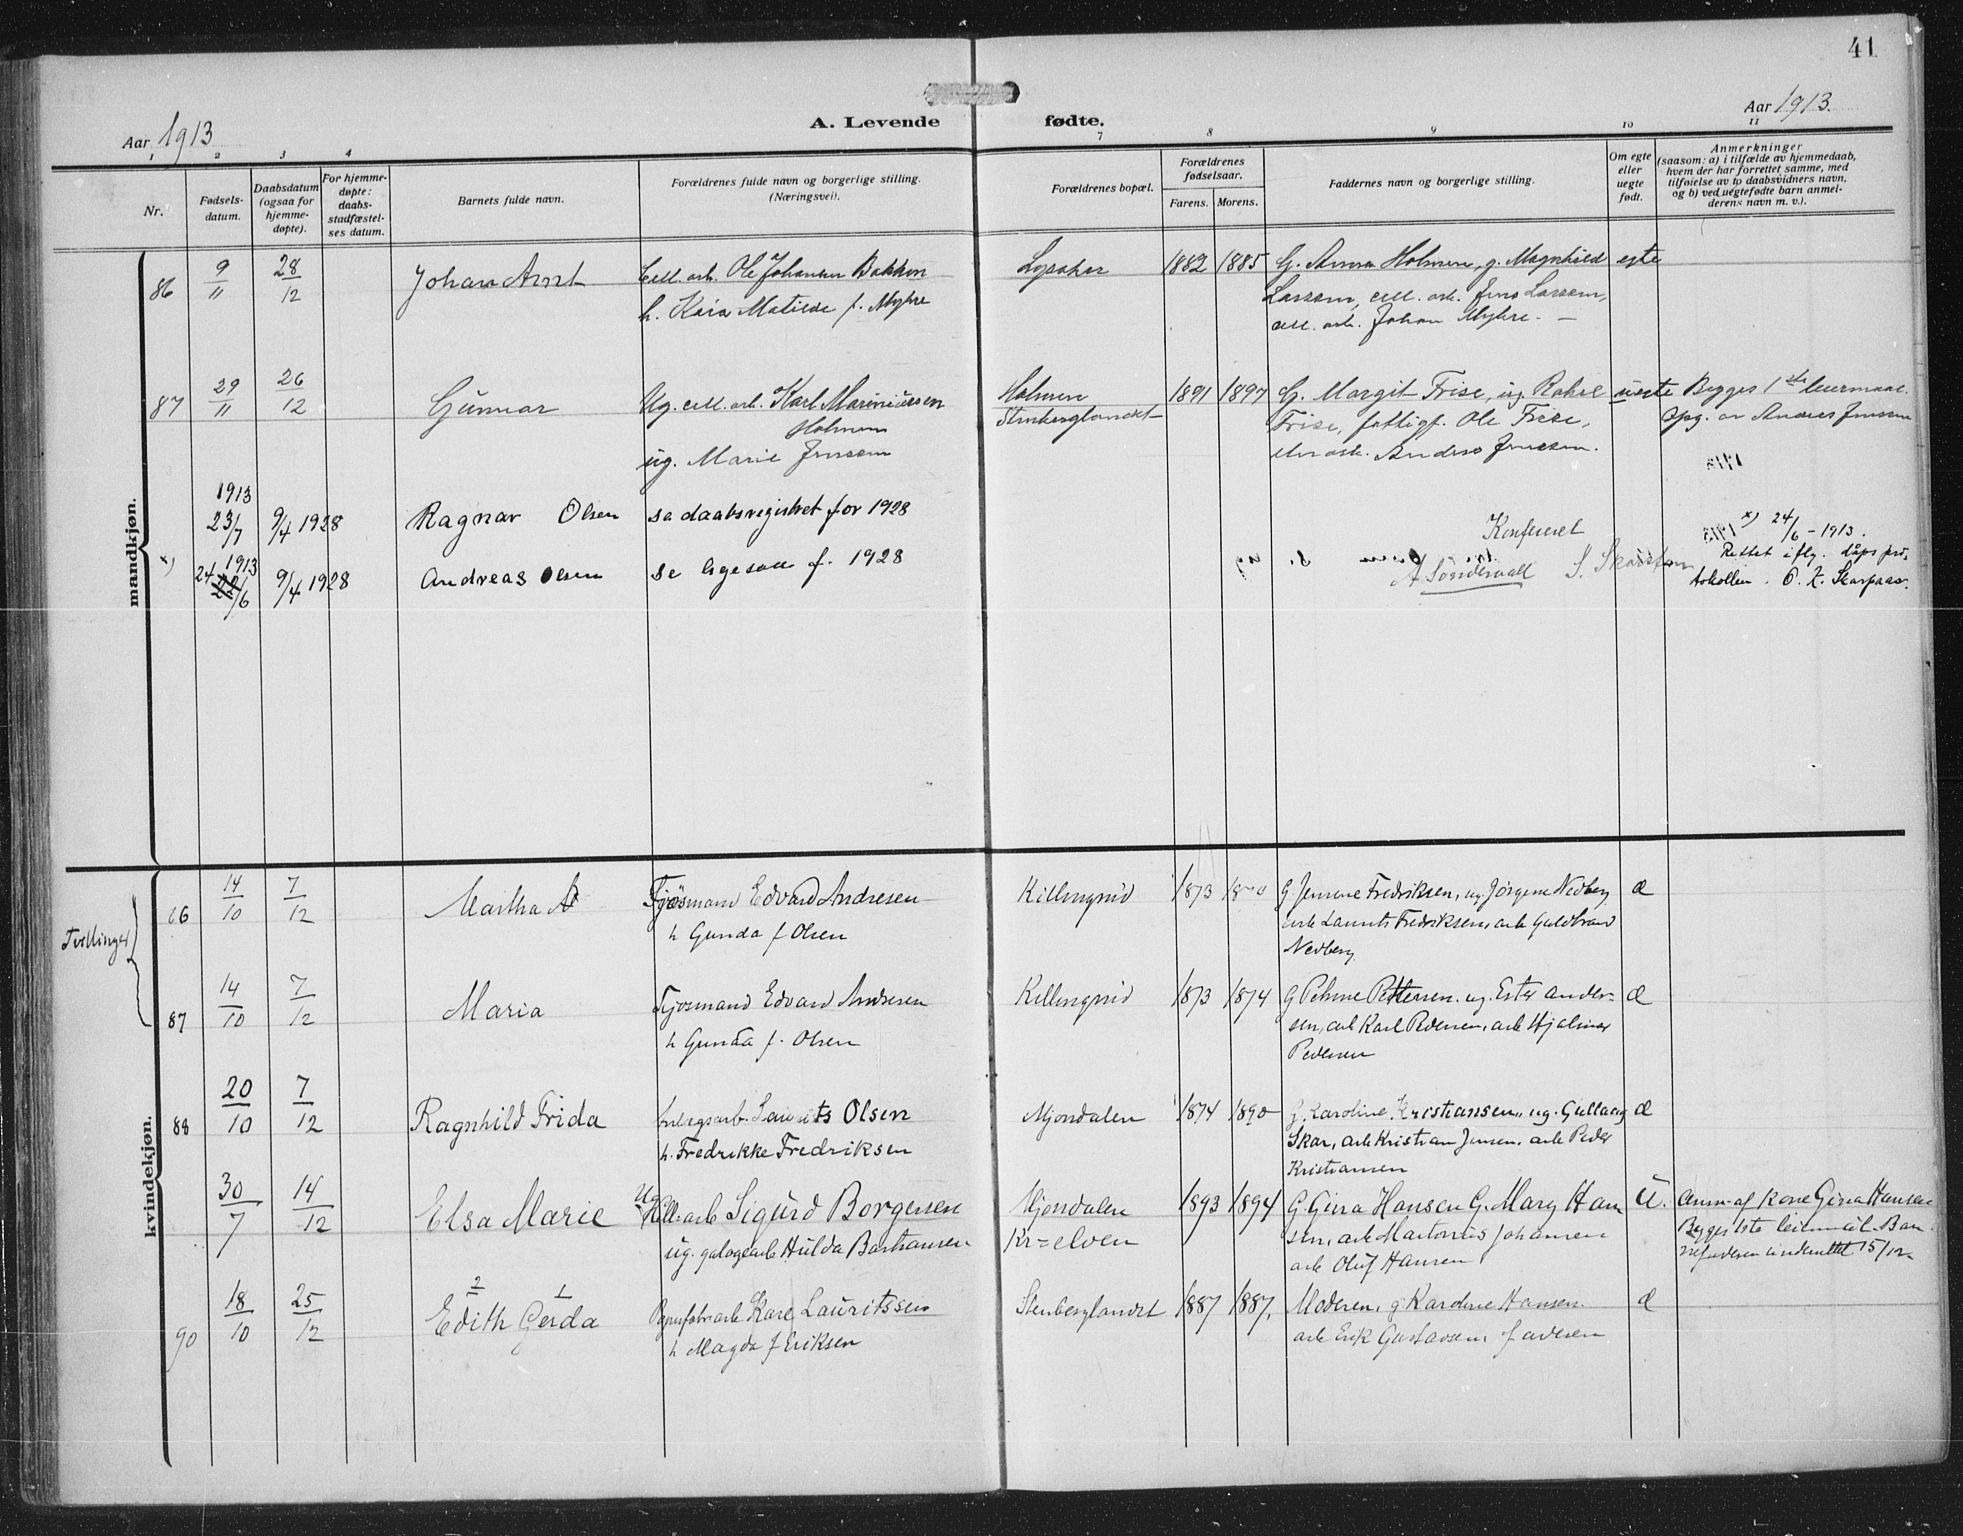 41
Aar 1913
A. Levende fødte.
Aar 1913.
1 2 3 4 7 8 9 10 11
Nr.
Fødsels-
datum.
Daabsdatum
(ogsaa for
hjemme-
døpte).
For hjemme-
døpte:
daabs-
stadfæstel-
ses datum.
Barnets fulde navn.
Forældrenes fulde navn og borgerlige stilling.
(Næringsvei).
Forældrenes bopæl.
Forældrenes
fødselsaar.
Farens. Morens.
Faddernes navn og borgerlige stilling.
Om egte
eller
uegte
født.
Anmerkninger
(saasom: a) i tilfælde av hjemmedaab,
hvem der har forrettet samme, med
tilføielse av to daabsvidners navn,
og b) ved uegtefødte barn anmel-
derens navn m. v.).
mandkjøn.
86 9/11 28/12 Johan Arnt Cell. arb. Ole Johansen Bakken Lysaker 1882 1885 G. Anna Holmen, g. Magnhild egte
h. Kaia Matilde f. Myhre Larsen, cell. arb. Jens Larsen,
cell. arb. Johan Myhre. —
87 29/11 26/12 Gunnar Ug. cell. arb. Karl Mariniussen Holmen 1891 1897 G. Margit Frise, ug. Rakel Frise uegte Begges 1ste leiermaal.
Holmen Stenberglandet Frise, fattigf. Ole Frise, Opg. av Anders Jensen
ug. Marie Jensen arb. Anders Jensen.
1913
23/7 9/4 1928 Ragnar Olsen se daabsregistret for 1928
Konfereret x) 24/6 - 1913.
x) 1913
24 22/6 9/4 1928 Andreas Olsen se ligesaa f. 1928
A Sønderaal S. Skaisten Rettet iflg. dåps pro-
tokollen. O. K. Skarpaas.
kvindekjøn.
Tvillinger
86 14/10 7/12 Martha A Tjøsmand Edvard Andresen Killingrud 1873 G. Jensine Fredriksen, ug Jørgine Nedberg æ
h Gunda f Olsen arb Laurits Fredriksen, arb Guldbrand
Nedberg
87 14/10 7/12 Maria Tjøsmand Edvard Andresen Killingrud 1873 1874 G Petrine Pettersen. ug. Ester Ander- æ
h Gunda f. Olsen sen, arb Karl Pedersen, arb Hjalmar
Pedersen
88 20/10 7/12 Ragnhild Frida arb. Laurits Olsen Mjøndalen 1874 1890 G. Karoline Kristiansen, ug. Gullaug æ
h. Fredrikke Fredriksen Skar, arb Kristian Jensen. arb Peder
Kristiansen
30/7 14/12 Elsa Marie Ug Cell. arb Sigurd Borgersen Mjøndalen 1893 1894 G. Gina Hansen G. Mary Han U. Anm. af kone Gina Hansen
ug. galogearb Hulda Barhansen Kr=elven sen, arb Martinius Johansen Begges 1ste leiermaal. Bar-
arb Oluf Hansen nefaderen underrettet 15/12
90 18/10 25/12 2 1 Edith Gerda Papirfabrarb Karl Lauritssen Stenberglandet 1887 1887, Moderen, g Karoline Hansen. æ
h Magda f Eriksen arb Erik Gustavsen, faderen